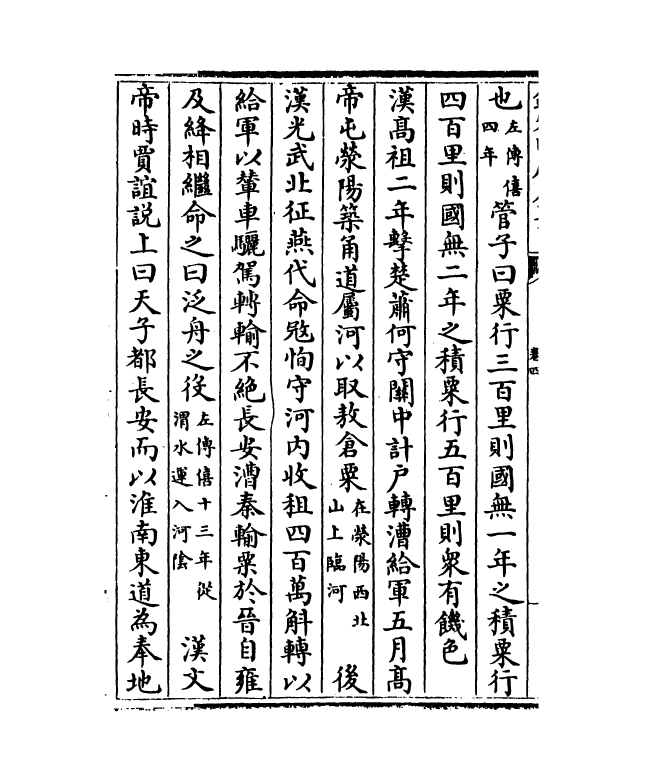 也左傳僖四年管子曰粟行三百里則國無一年之積粟行
四百里則國無二年之積粟行五百里則衆有饑色
漢髙祖二年擊楚蕭何守關中計户轉漕給軍五月髙
帝屯滎陽築甬道屬河以取敖倉粟在滎陽西北山上臨河後
漢光武北征燕代命㓂恂守河内收租四百萬斛轉以
給軍以輦車驪駕轉輸不絶長安漕秦輸粟於晉自雍
及絳相繼命之曰泛舟之役左傳僖十三年從渭水運入河隂漢文
帝時賈誼説上曰天子都長安而以淮南東道為奉地